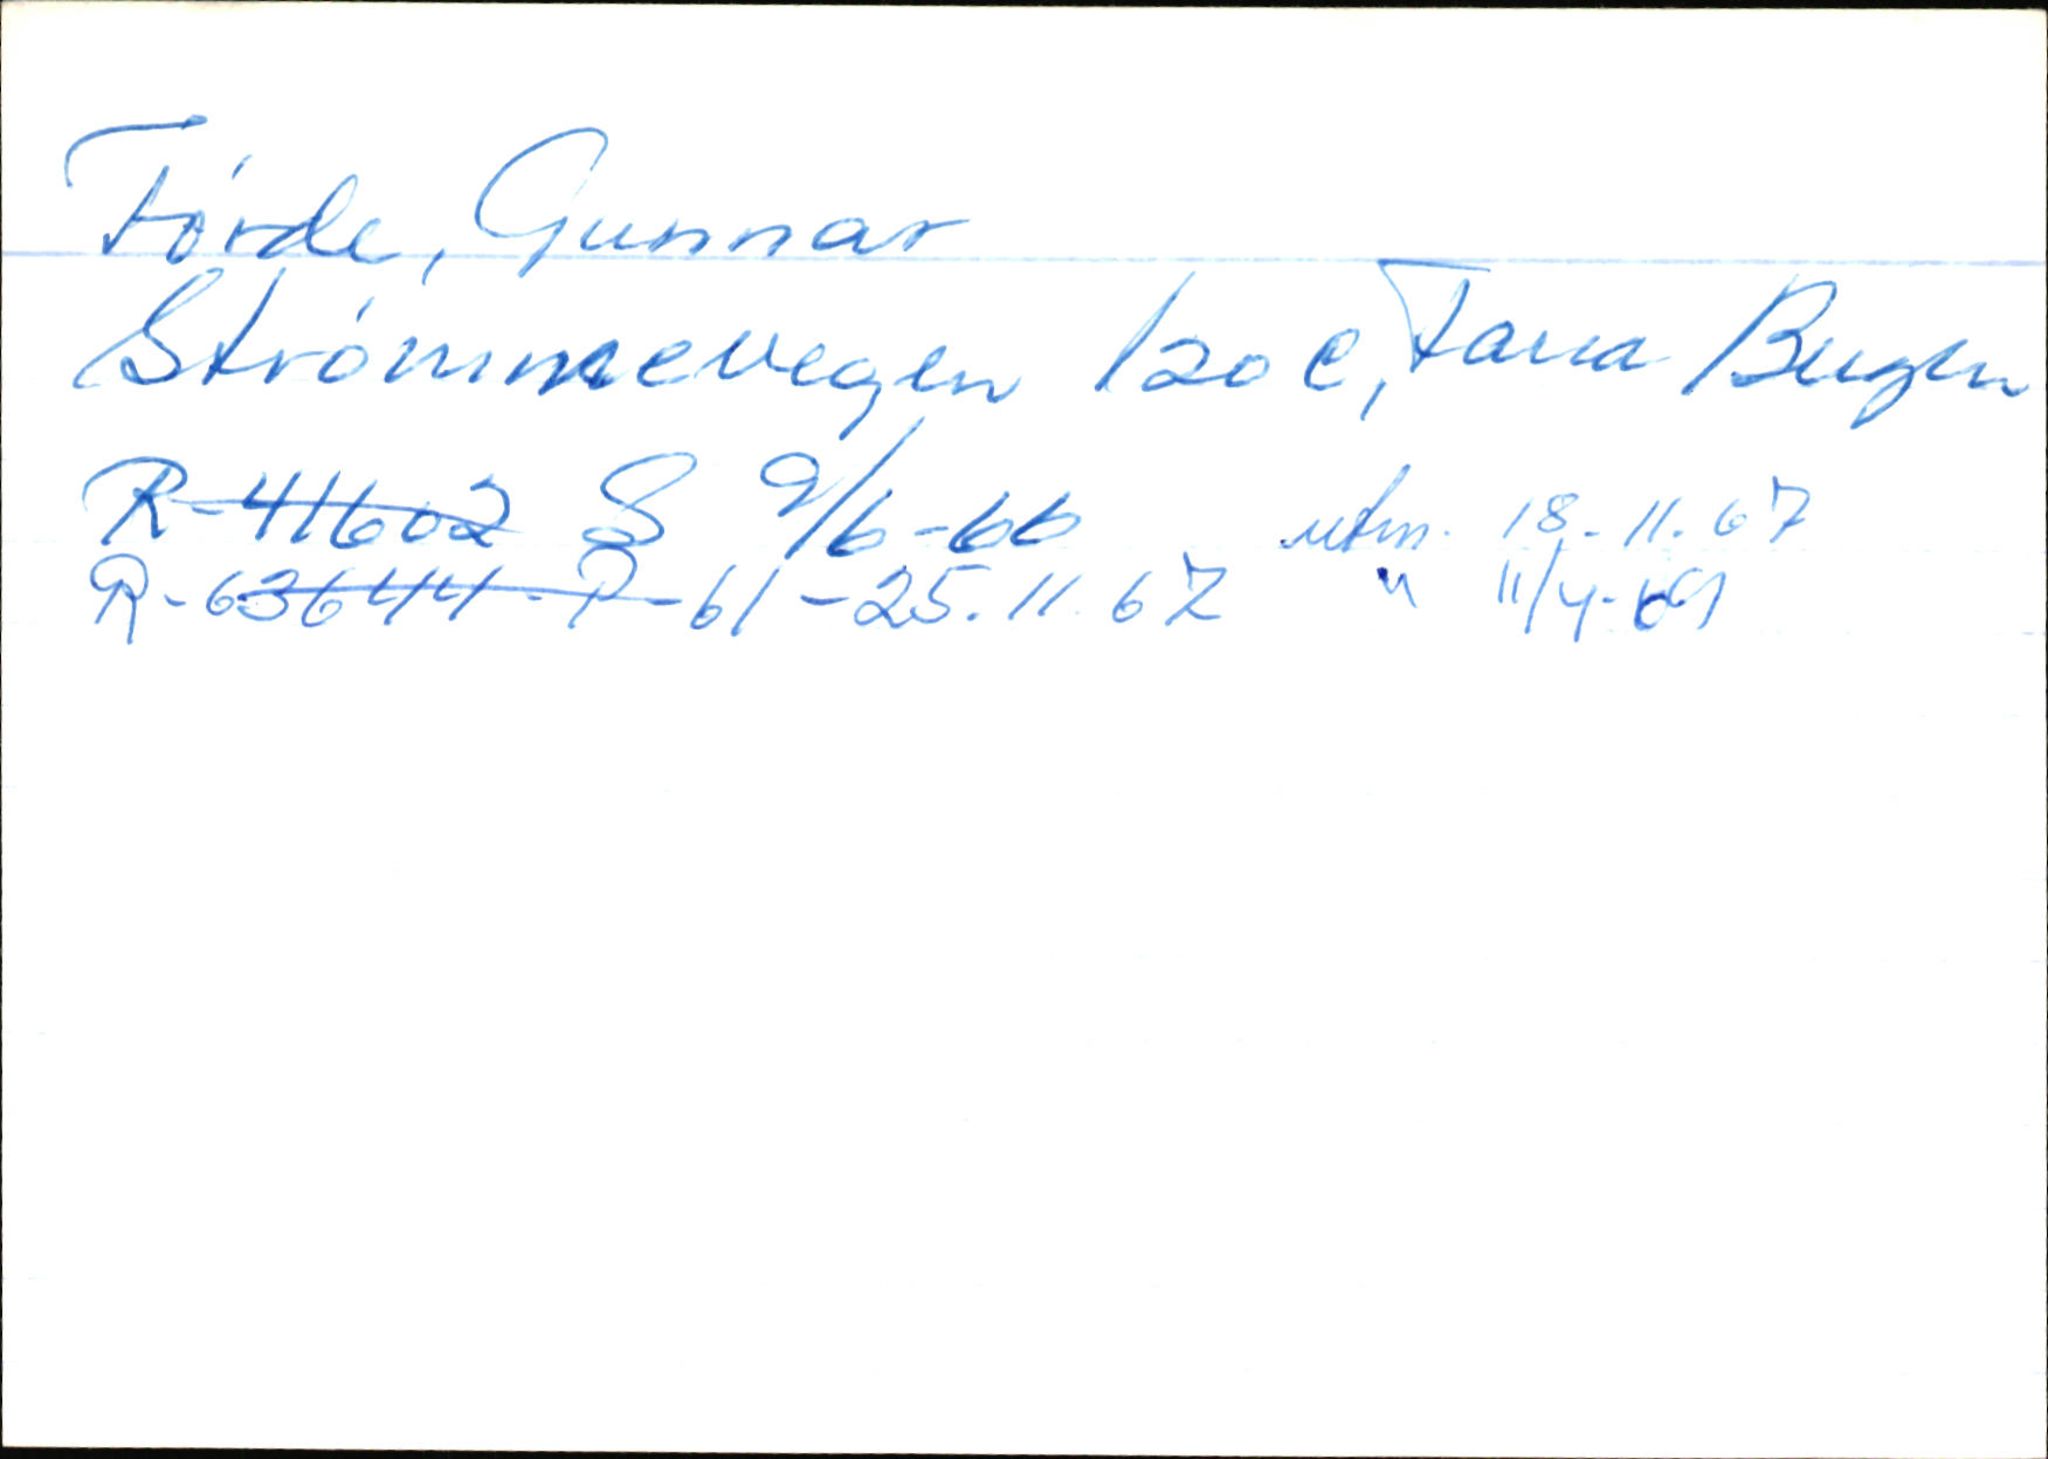 Førde, Gunnar
Strømmevegen 120 C, Fana Bergen
R-41602 S 9/6-66 utm. 18-11.67
R-63644-P-61-25.11.67 " 11/4-69